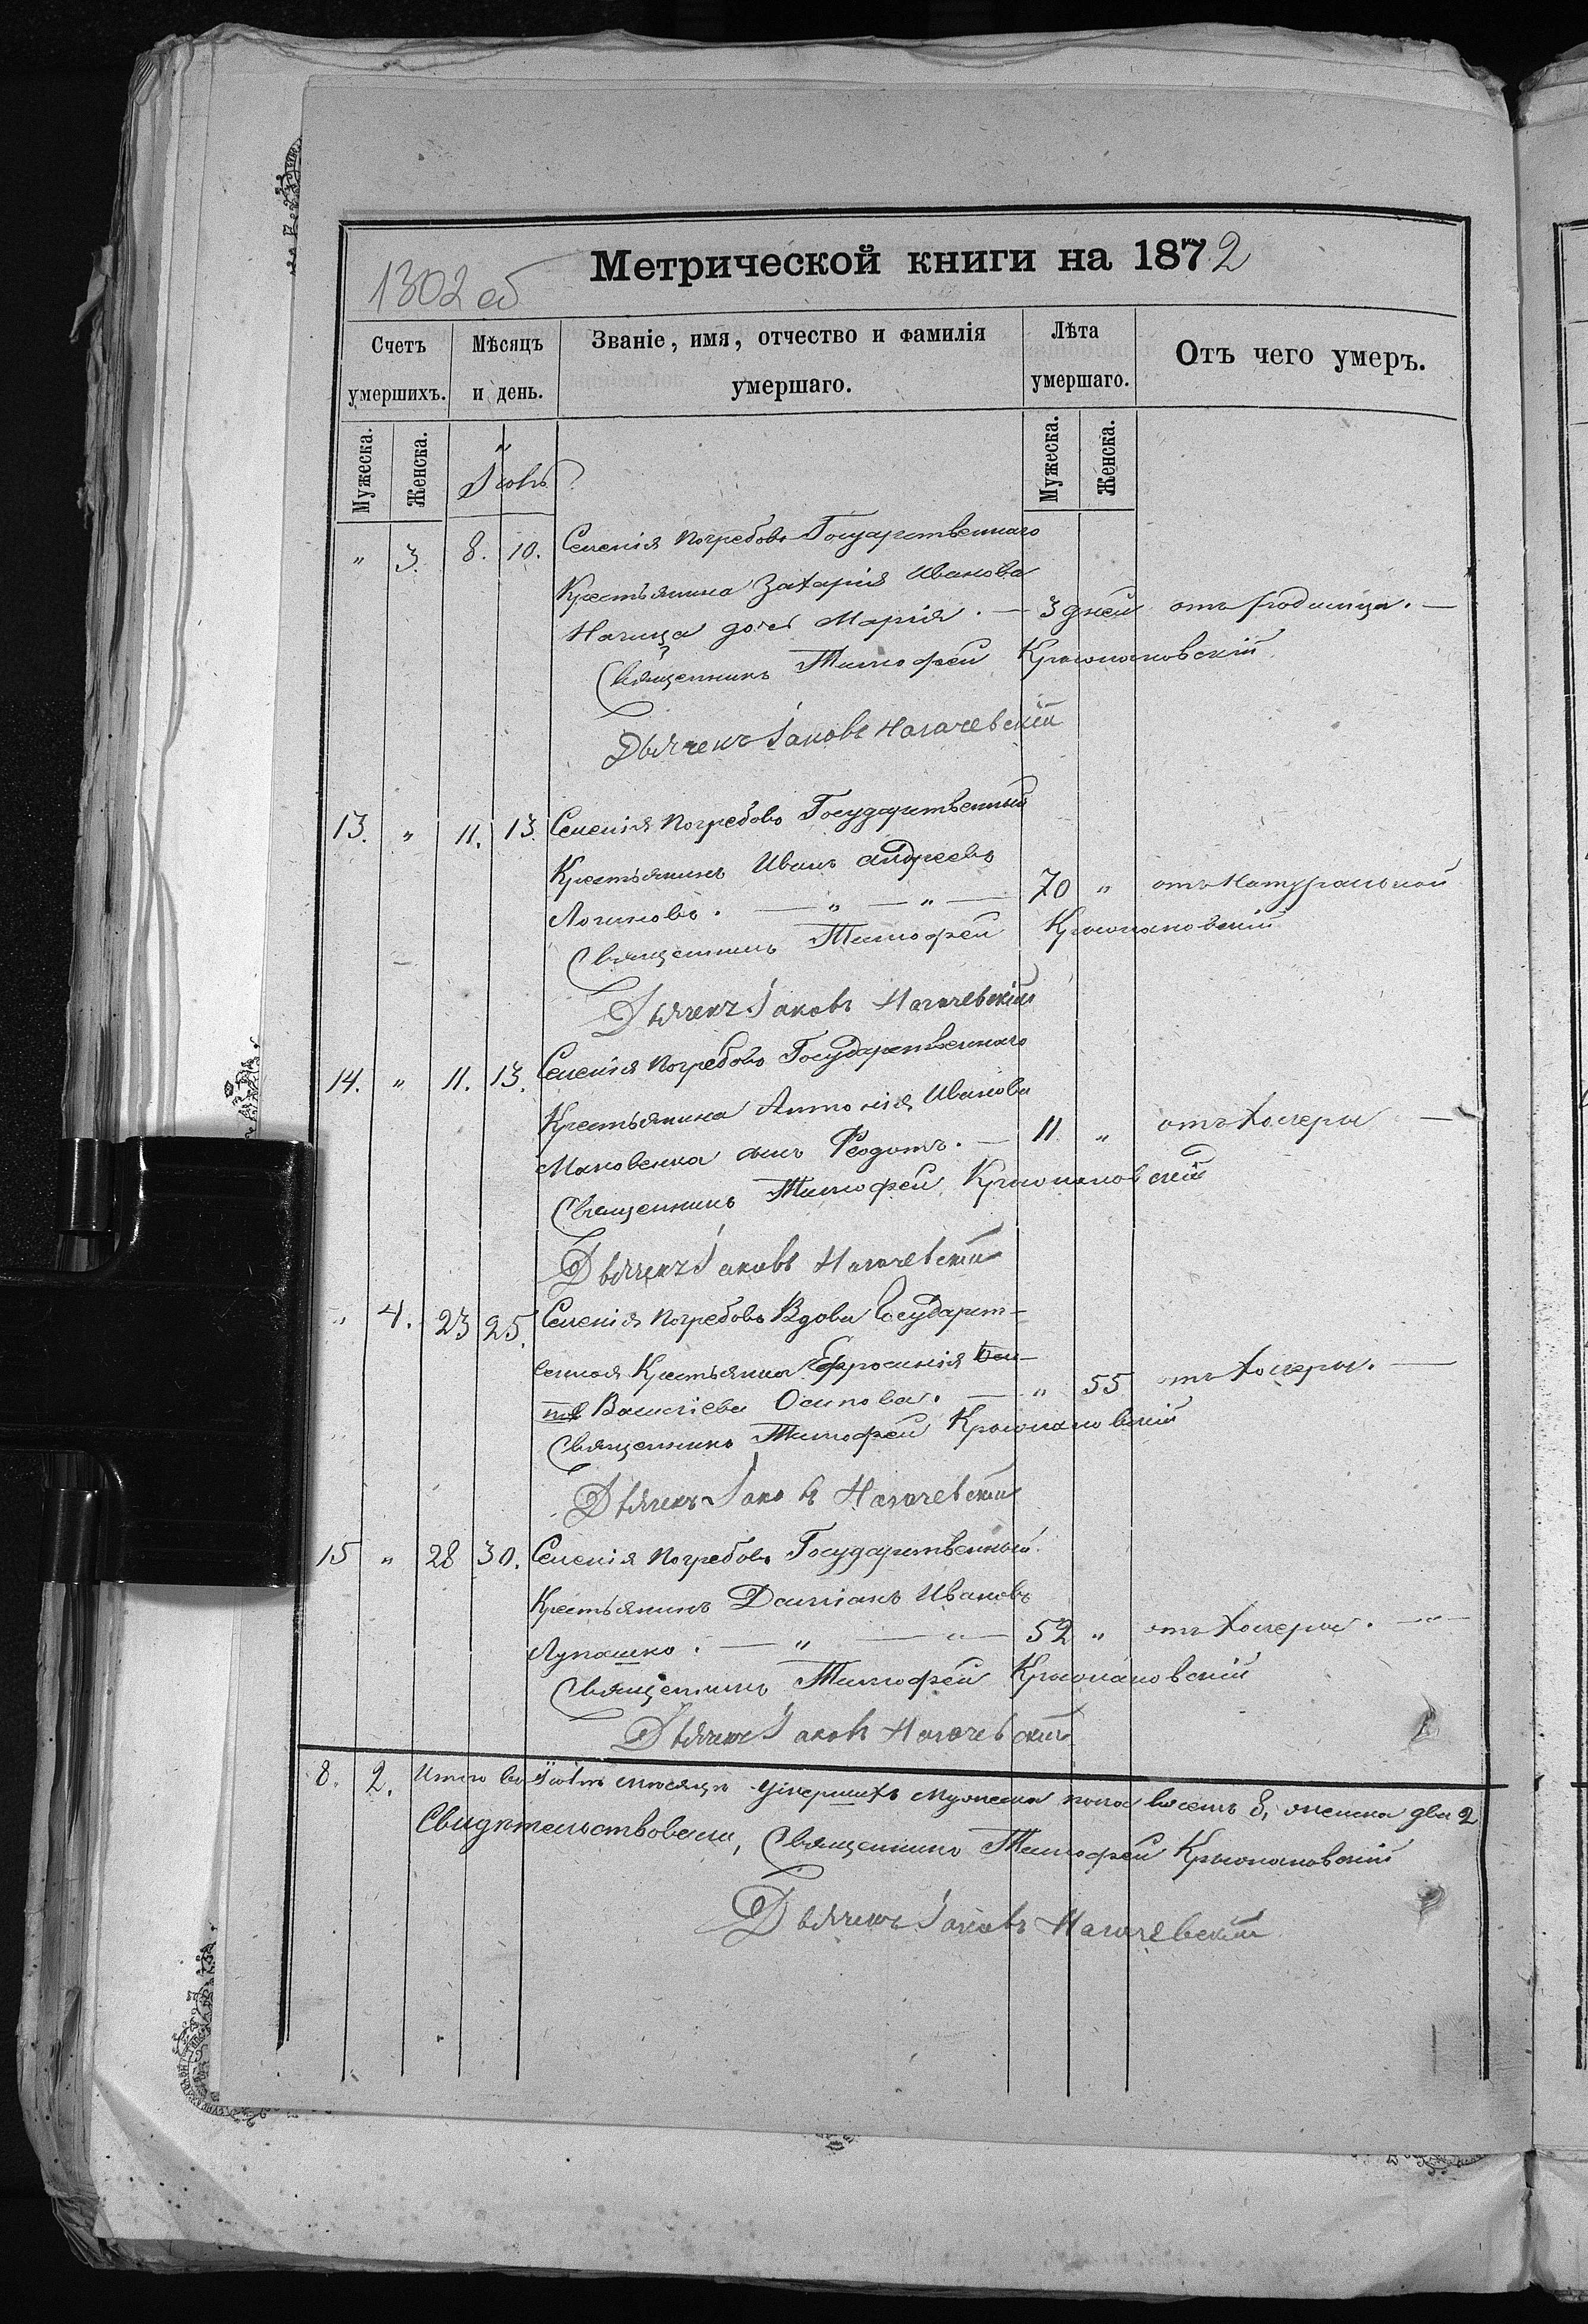 Метрической книги на 1872
1302 об
Счетъ умершихъ.
Мѣсяцъ и день.
Званіе, имя, отчество и фамилія умершаго.
Лѣта умершаго.
Отъ чего умеръ.
Мужеска.
Женска.
Мужеска.
Женска.
" 3. 8. 10. Селенія Погребовъ Государственнаго
Крестьянина Захарія Иванова
дочь Марія. — 3 дней отъ родимца. —
Священникъ Тимофей
Дьячекъ ІаковъНогачевскій
13. " 11. 13. Селенія Погребовъ Государственный
Крестьянинъ Иванъ Андреевъ
Логиновъ. — " — " — 70 " отъ Натуральной
Священникъ Тимофей
Дьячекъ Іаковъ Ногачевскій
14. " 11. 13. Селенія Погребовъ Государственнаго
Крестьянина Антонія Иванова
Маковенка сынъ Феодотъ. — 11 " отъ Холеры —
Священникъ Тимофей
Дьячекъ Іаковъ Ногачевскій
" 4. 23 25. Селенія Погребовъ Вдова Государст-
венная Крестьянка Ефросинія
Василіева Осипова. — " 55 отъ Холеры. —
Священникъ Тимофей
Дьячекъ Іаковъ Ногачевскій
15 " 28 30. Селенія Погребовъ Государственный
Крестьянинъ Даміанъ Ивановъ
Лупашко. — " — " — 52 " отъ Холеры. — " —
Священникъ Тимофей
Дьячекъ Іаковъ Ногачевскій
8. 2. Итого въ мѣсяцѣ умершихъ Мужеска пола восемь 8, женска два 2
Свидѣтельствовали, Священникъ Тимофей
Дьячекъ Іаковъ Ногачевскій